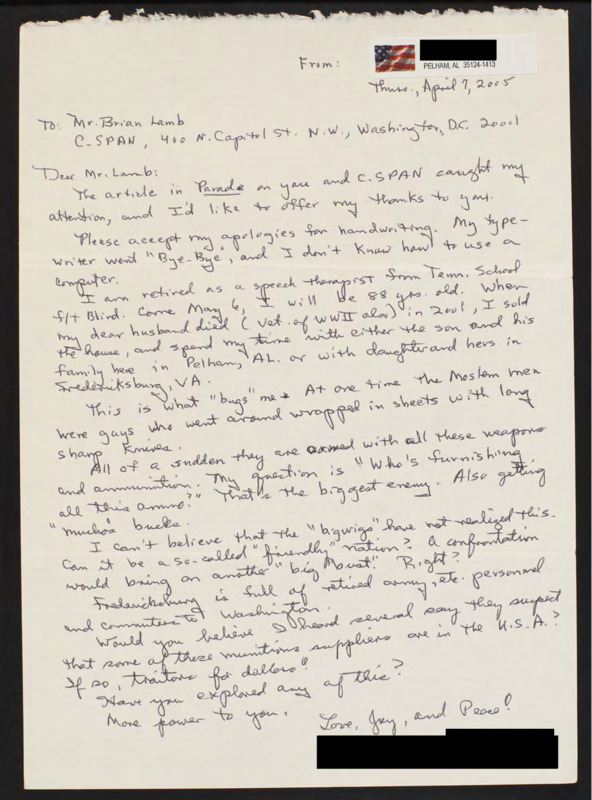 From:
PELHAM, AL 35124-1413
Thurs., April 7, 2005
To: Mr. Brian Lamb
C-SPAN, 400 N. Capitol St. N.W., Washington, D.C. 20001
Dear Mr. Lamb:
The article in Parade on you and C-SPAN caught my
attention, and I'd like to offer my thanks to you.
Please accept my apologies for handwriting. My type-
writer went "Bye-Bye", and I don't know how to use a
computer.
I am retired as a speech therapist from Tenn. School
f/t Blind. Come May 6, I will be 88 yrs. old. When
my dear husband died (Vet. of WWII also) in 2001, I sold
the house, and spend my time with either the son and his
family here in Pelham, AL. or with daughter and hers in
Fredericksburg, VA.
This is what "bugs" me. At one time the Moslem men
were guys who went around wrapped in sheets with long
sharp knives.
All of a sudden they are armed with all these weapons
and ammunition. My question is "Who's furnishing
all this ammo?" That's the biggest enemy. Also getting
"muchos" bucks.
I can't believe that the "bigwigs" have not realized this.
Can it be a so-called "friendly" nation? A confrontation
would bring on another "big bust." Right?
Fredericksburg is full of retired army, etc. personnel
and commuters to Washington.
Would you believe I heard several say they suspect
that some of these munitions suppliers are in the U.S.A.?
If so, traitors for dollars!
Have you explored any of this?
More power to you.
Love, Joy, and Peace!